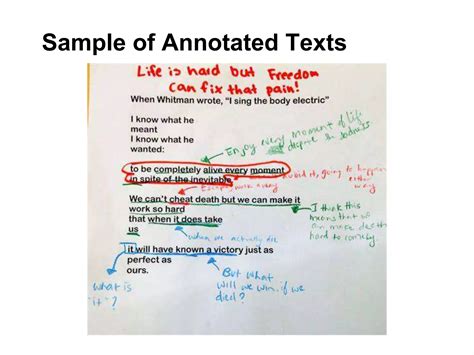 Sample of Annotated Texts
Life is hard but Freedom
can fix that pain!
When Whitman wrote, "I sing the body electric"
I know what he
meant
I know what he
wanted:
Enjoy every moment of life
despite the sadness
to be completely alive every moment
in spite of the inevitable
going to happen
either
way
We can't cheat death but we can make it
work so hard
that when it does take
us
I think this
means that we
can make death
hard to
when we actually die
it will have known a victory just as
perfect as
ours.
what is
"it"?
But what
will we win if we
died?